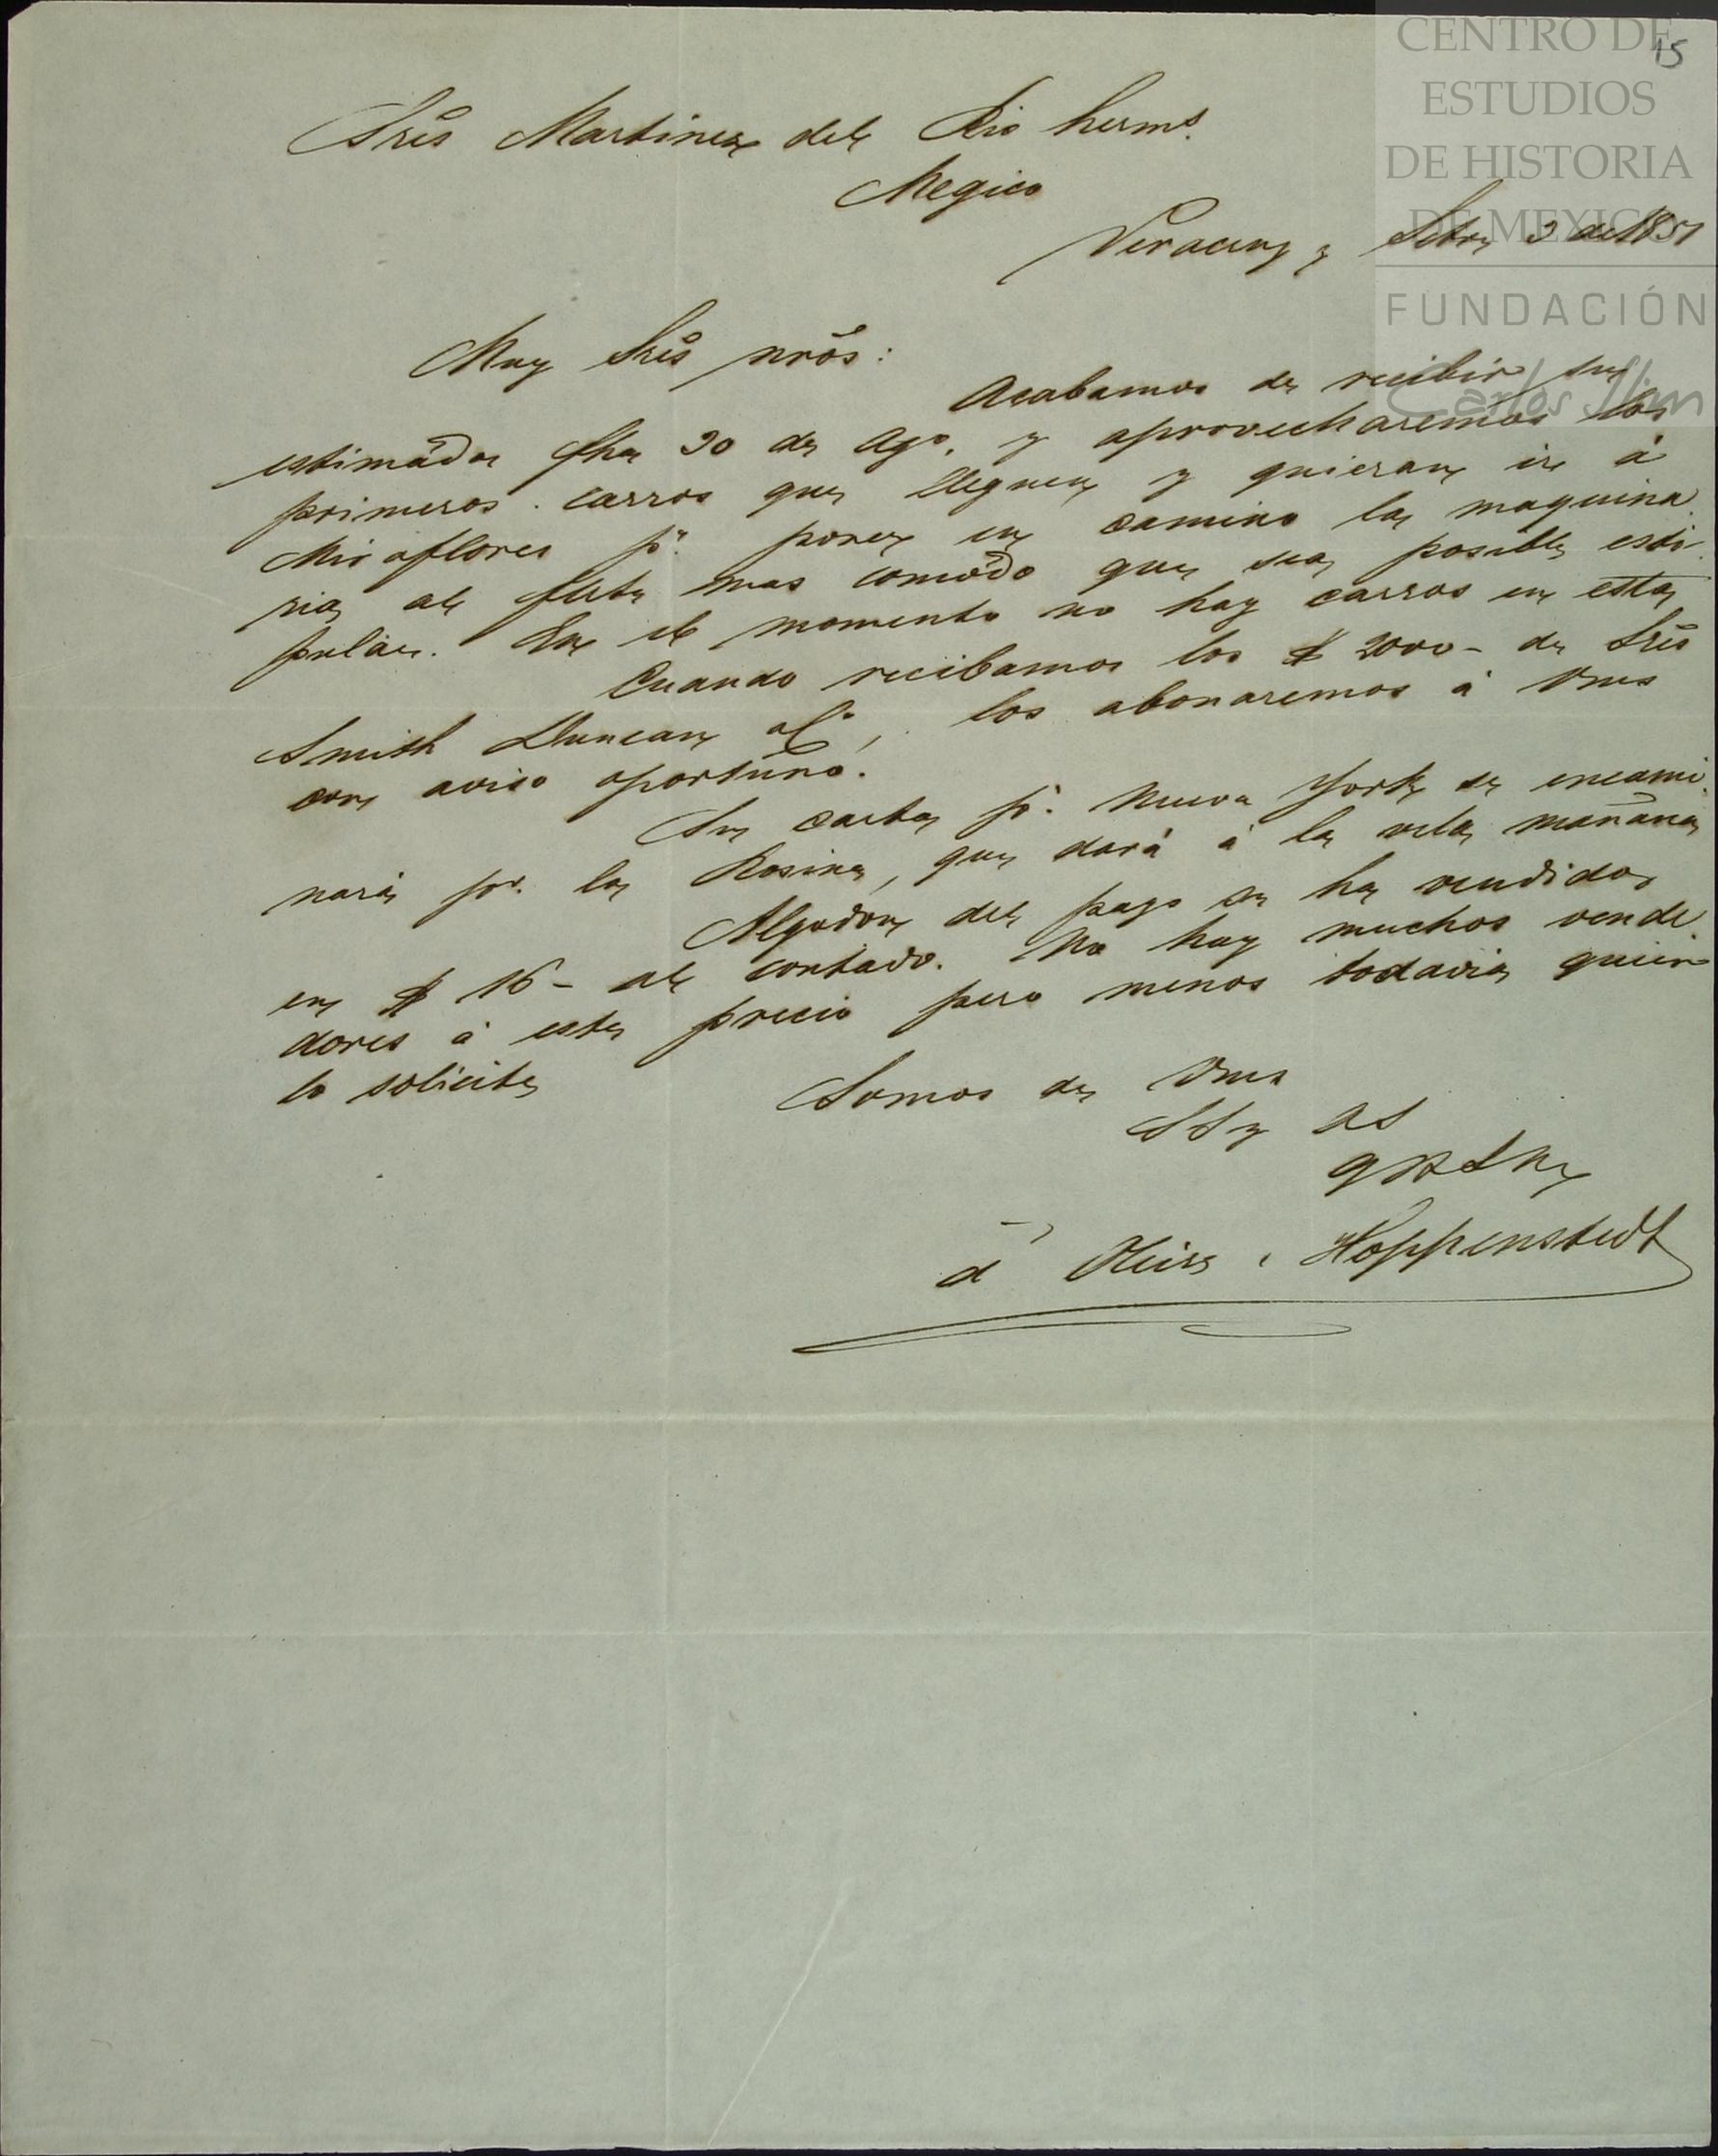 CENTRO DE
ESTUDIOS
DE HISTORIA
DE MEXICO
FUNDACIÓN
Carlos Slim
15
Sres Martinez del Rio herms.
Megico
Veracruz, Setre 3 de 1851
Muy Sres nros:
Acabamos de recibir su
estimada fha 30 de Ago. y aprovecharemos los
primeros carros que lleguen y quieran ir á
Miraflores pa. poner en camino la maquina
ria al flete mas comodo que sea posible esti
pular. En el momento no hay carros en esta
Cuando recibamos los $ 2000 - de Sres
Smith Duncan &Ca, los abonaremos á Vms
con aviso oportuno.
Su carta pa. Nueva York se encami
nará pr. la Rosina, que dará á la vela mañana
Algodon del pays se ha vendido
en $ 16 - al contado. No hay muchos vende
dores á este precio pero menos todavia quien
lo solicite
Somos de Vms
SS y AS
QBSM
d' Oleire, Hoppenstedt